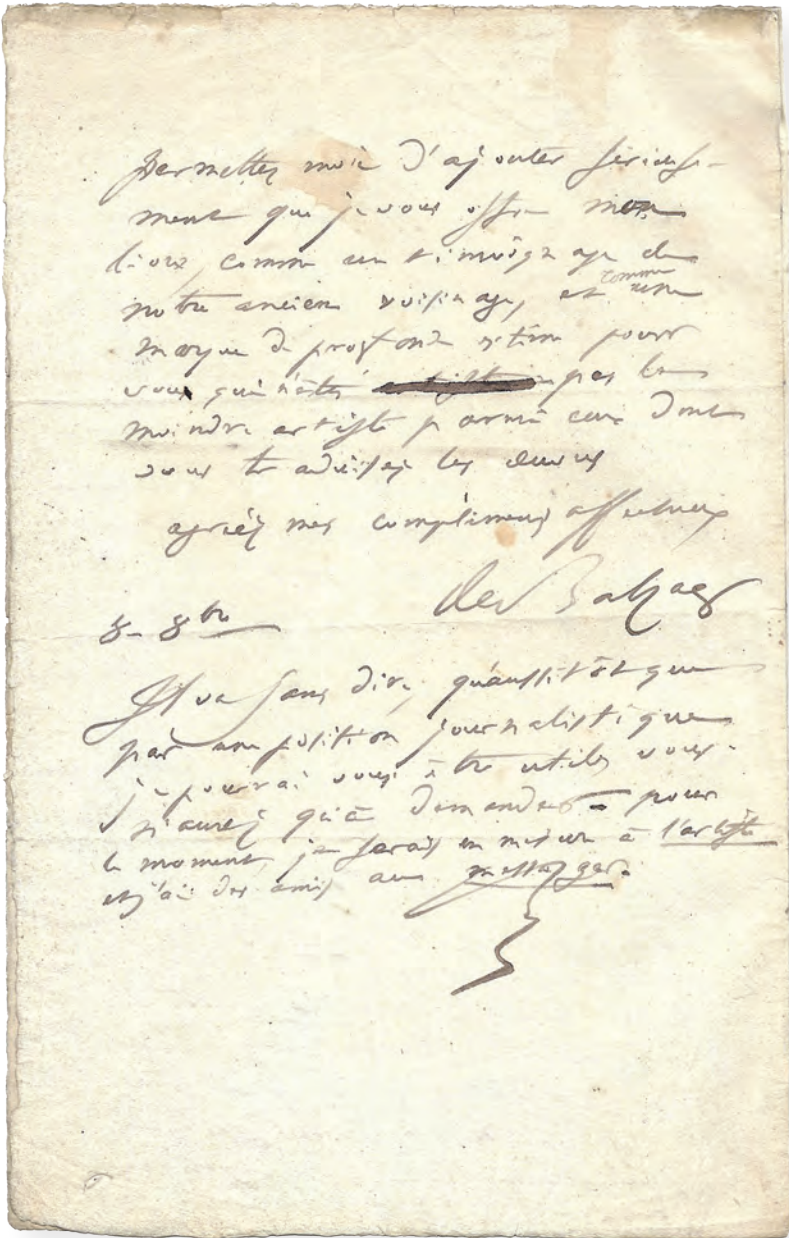 permettez moi d'ajouter sérieuse-
ment que je vous offre mon
livre, comme un témoignage de
notre ancien voisinage, et comme une
marque de profond estime pour
vous qui n'êtes pas le
moindre artiste parmi ceux dont
vous les œuvres
agréez mes compliments affectueux
de Balzac
8- 8bre
Il va sans dire, qu'aussitôt que
par ma position journalistique
je pourrai vous être utile, vous
n'aurez qu'à demander - pour
le moment, je serais en mesure à l'artiste
et j'ai des amis au messager.